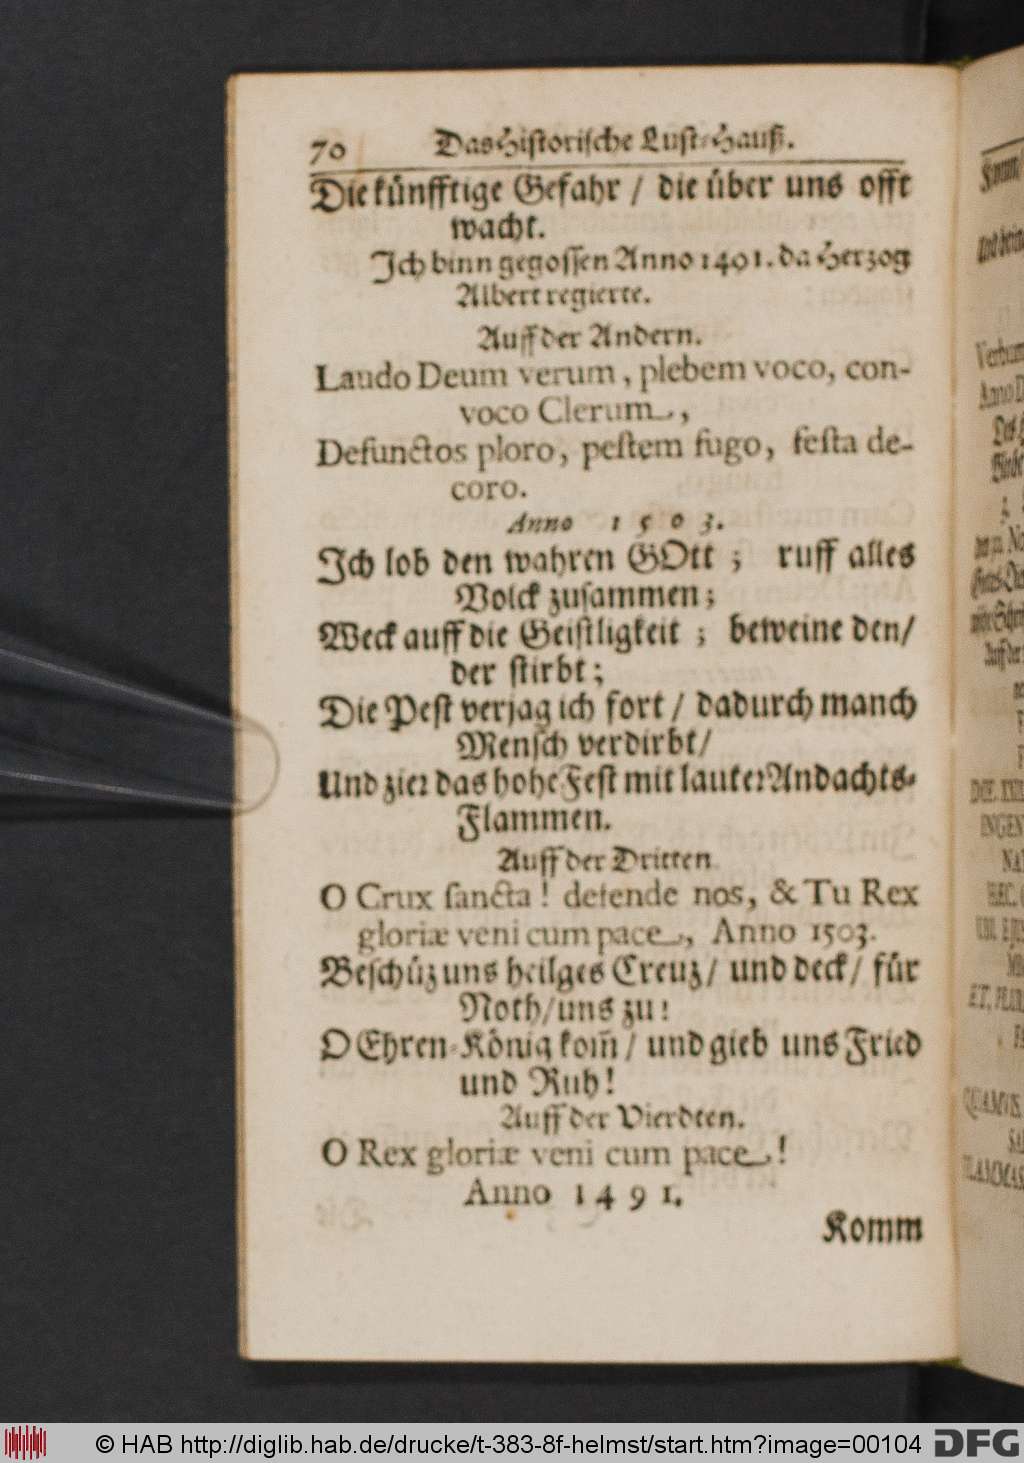 70 Das Historische Lust-Hauß.
Die künfftige Gefahr / die über uns offt
wacht.
Ich binn gegossen Anno 1491. da Herzog
Albert regierte.
Auff der Andern.
Laudo Deum verum, plebem voco, con-
voco Clerum,
Defunctos ploro, pestem fugo, festa de-
coro.
Anno 1503.
Ich lob den wahren GOtt; ruff alles
Volck zusammen;
Weck auff die Geistligkeit; beweine den/
der stirbt;
Die Pest verjag ich fort / dadurch manch
Mensch verdirbt/
Und zier das hohe Fest mit lauter Andachts-
Flammen.
Auff der Dritten
O Crux sancta! defende nos, & Tu Rex
gloriæ veni cum pace, Anno 1503.
Beschüz uns heilges Creuz/ und deck/ für
Noth/uns zu!
O Ehren-König kom̃/ und gieb uns Fried
und Ruh!
Auff der Vierdten.
O Rex gloriæ veni cum pace!
Anno 1491.
Komm
Verbum
DFG
© HAB http://diglib.hab.de/drucke/t-383-8f-helmst/start.htm?image=00104